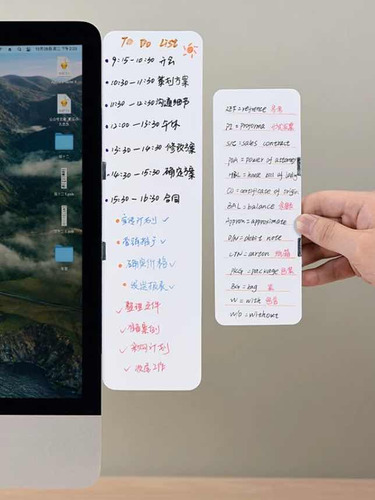 To Do List
9:15-10:30 开会
10:30-11:30 策划方案
11:30-12:00 沟通细节
12:00-13:30 午休
13:30-14:30 修改方案
14:30-15:30 确定方案
15:30-16:30 合同
安排计划 ✓
营销推广 ✓
确定价格 ✓
发送报表 ✓
✓ 整理文件
✓ 计划
✓ 收尾工作
REF = reference 参考
PI = Proforma 形式发票
S/C = sales contract
POA = power of attorney
HBL = house bill of lading
CO = certificate of origin
BAL = balance 余额
Approx = approximate
D/N = debit note
CTN = carton 纸箱
PKG = package 包装
BG = bag 袋
W = with
W/O = without